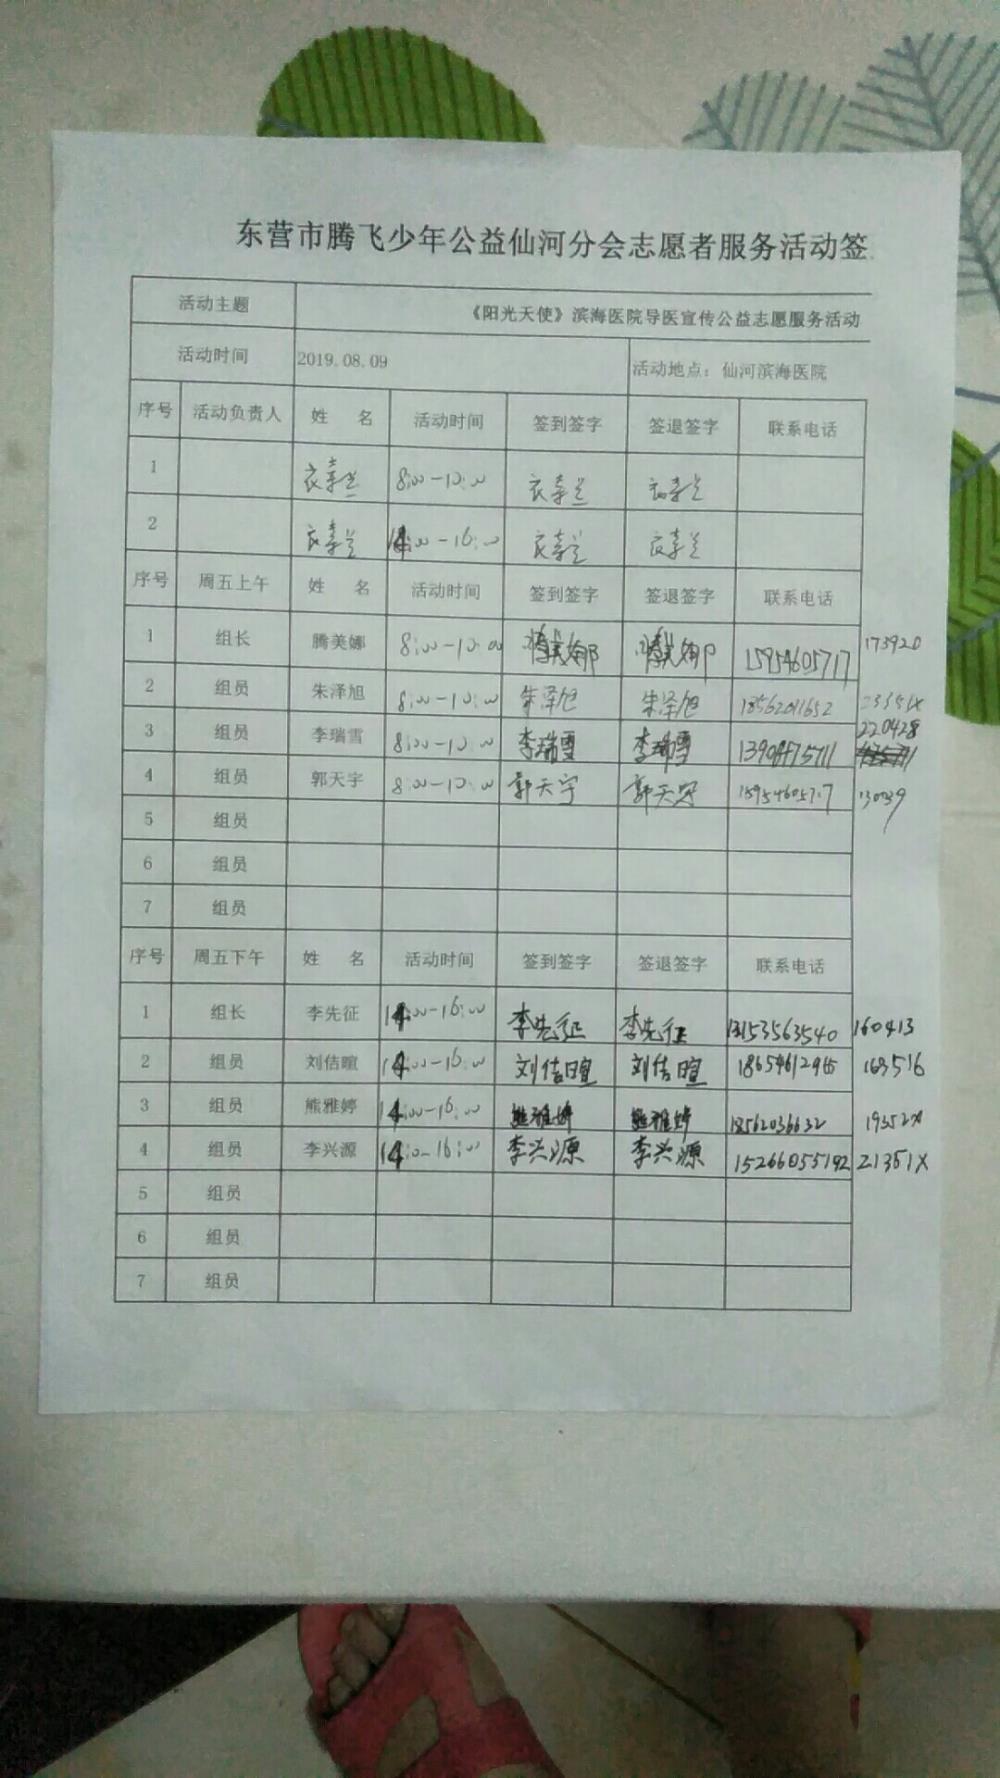 东营市腾飞少年公益仙河分会志愿者服务活动签
活动主题 《阳光天使》滨海医院导医宣传公益志愿服务活动
活动时间 2019.08.09 活动地点：仙河滨海医院
序号 活动负责人 姓 名 活动时间 签到签字 签退签字 联系电话
1 8:00-10:00
2 14:00-16:00
序号 周五上午 姓 名 活动时间 签到签字 签退签字 联系电话
1 组长 腾美娜 8:00-10:00 腾美娜 腾美娜 15954605717 173920
2 组员 朱泽旭 8:00-10:00 朱泽旭 朱泽旭 18562011652
3 组员 李瑞雪 8:00-10:00 李瑞雪 李瑞雪 220428
4 组员 郭天宇 8:00-10:00 郭天宇 郭天宇 15954605717
5 组员
6 组员
7 组员
序号 周五下午 姓 名 活动时间 签到签字 签退签字 联系电话
1 组长 李先征 14:00-16:00 李先征 李先征 13153563540 160413
2 组员 刘佶暄 14:00-16:00 刘佶暄 刘佶暄 163516
3 组员 熊雅婷 14:00-16:00 熊雅婷 熊雅婷 18562036632 19352X
4 组员 李兴源 14:0-16:00 李兴源 李兴源 15266055192 21351X
5 组员
6 组员
7 组员